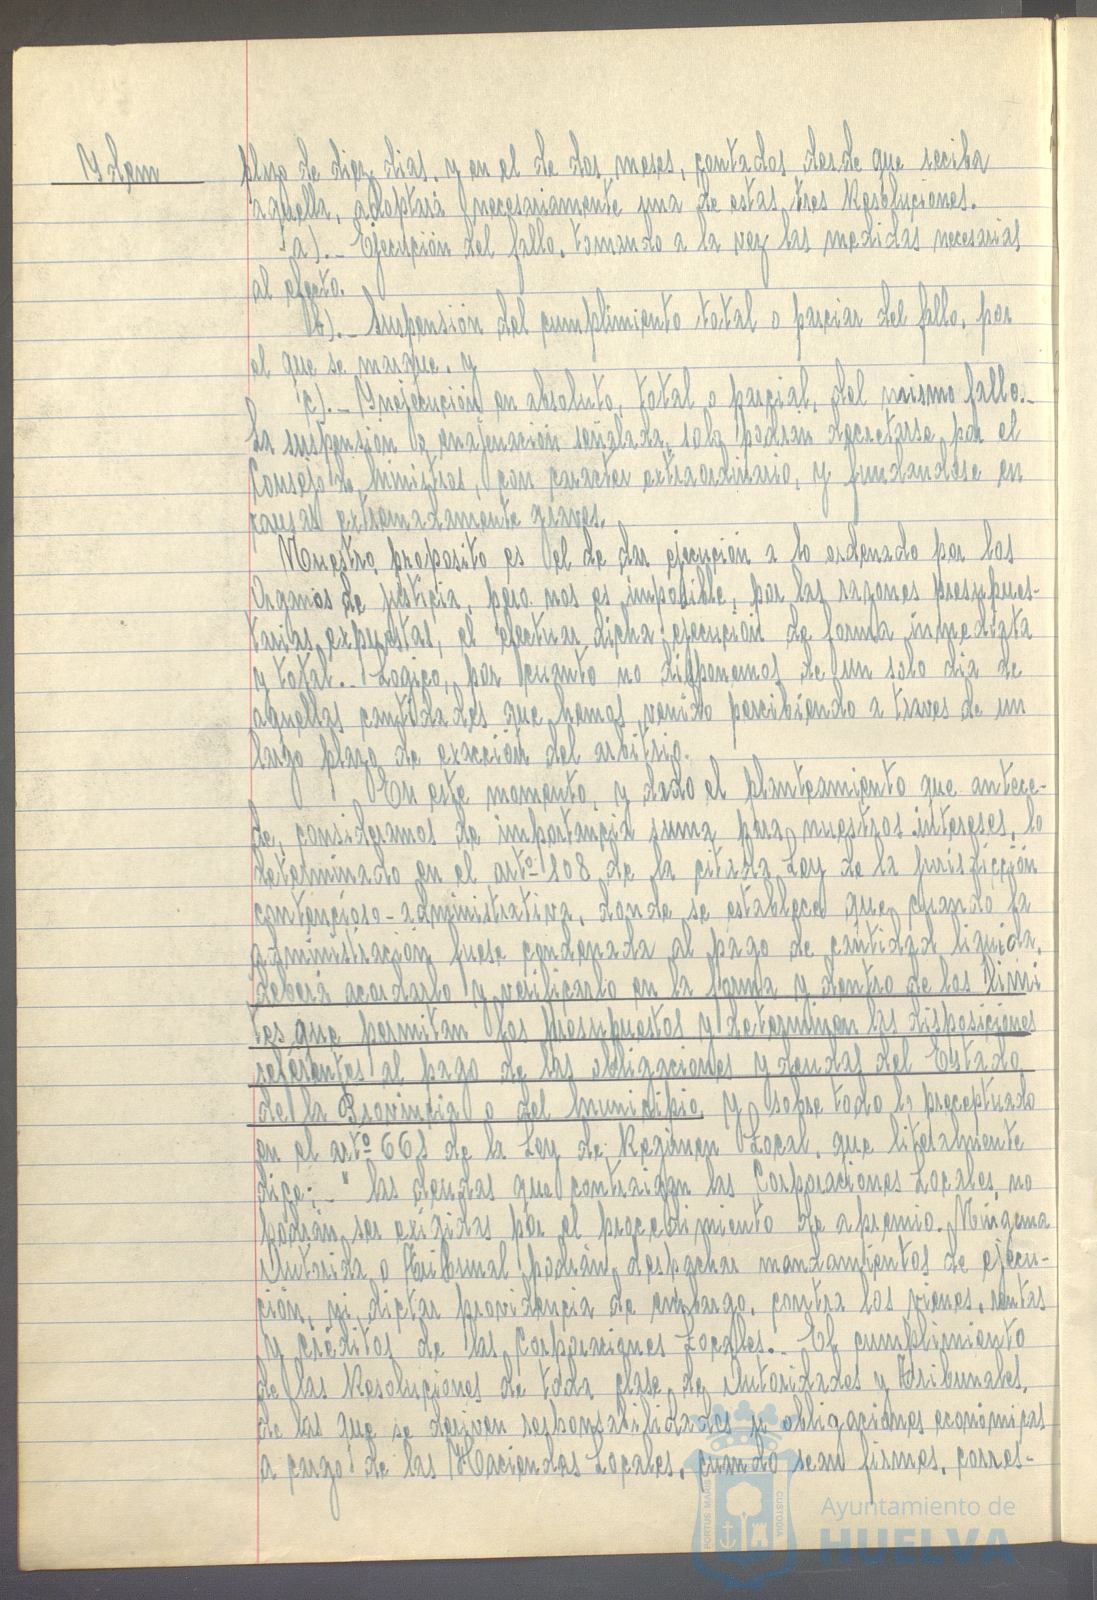 Ydem
plazo de diez dias, y en el de dos meses, contados desde que reciba
aquella, adoptará necesariamente una de estas tres Resoluciones.
a).- Ejecución del fallo, tomando a la vez las medidas necesarias
al efecto.
b).- Suspensión del cumplimiento total o parcial del fallo, por
el que se marque, y
c).- Ynejecución en absoluto, total o parcial, del mismo fallo.-
La suspensión o enajenación señalada, solo podrán decretarse por el
Consejo de Ministros, con carácter extraordinario, y fundandose en
causas extremadamente graves.
Nuestro proposito es el de dar ejecución a lo ordenado por los
Organos de justicia, pero nos es imposible, por las razones presupues-
tarias expuestas, el efectuar dicha ejecución de forma inmediata
y total.- Logico, por cuanto no disponemos de un solo dia de
aquellas cantidades que hemos venido percibiendo a traves de un
largo plazo de exacción del arbitrio.
En este momento, y dado el planteamiento que antece-
de, consideramos de importancia suma para nuestros intereses, lo
determinado en el artº 108 de la citada Ley de la jurisdicción
contencioso-administrativa, donde se establece que cuando la
administración fuese condenada al pago de cantidad liquida,
deberá acordarlo y verificarlo en la forma y dentro de los limi
tes que permitan los presupuestos y determinen las disposiciones
referentes al pago de las obligaciones y deudas del Estado,
de la Provincia o del Municipio, y sobre todo lo preceptuado
en el artº 661 de la Ley de Regimen Local, que literalmente
dice:- "las deudas que contraigan las Corporaciones Locales, no
podrán ser exigidas por el procedimiento de apremio. Ninguna
Autorida o Tribunal podrán despachar mandamientos de ejecu-
ción, ni dictar providencia de embargo, contra los vienes, rentas
y créditos de las Corporaciones Locales.- El cumplimiento
de las Resoluciones de toda clase de Autoridades y Tribunales,
de las que se deriven responsabilidades u obligaciones economicas
a cargo de las Haciendas Locales, cuando sean firmes, corres-
PORTUS MARIS
CUSTODIA
Ayuntamiento de
HUELVA